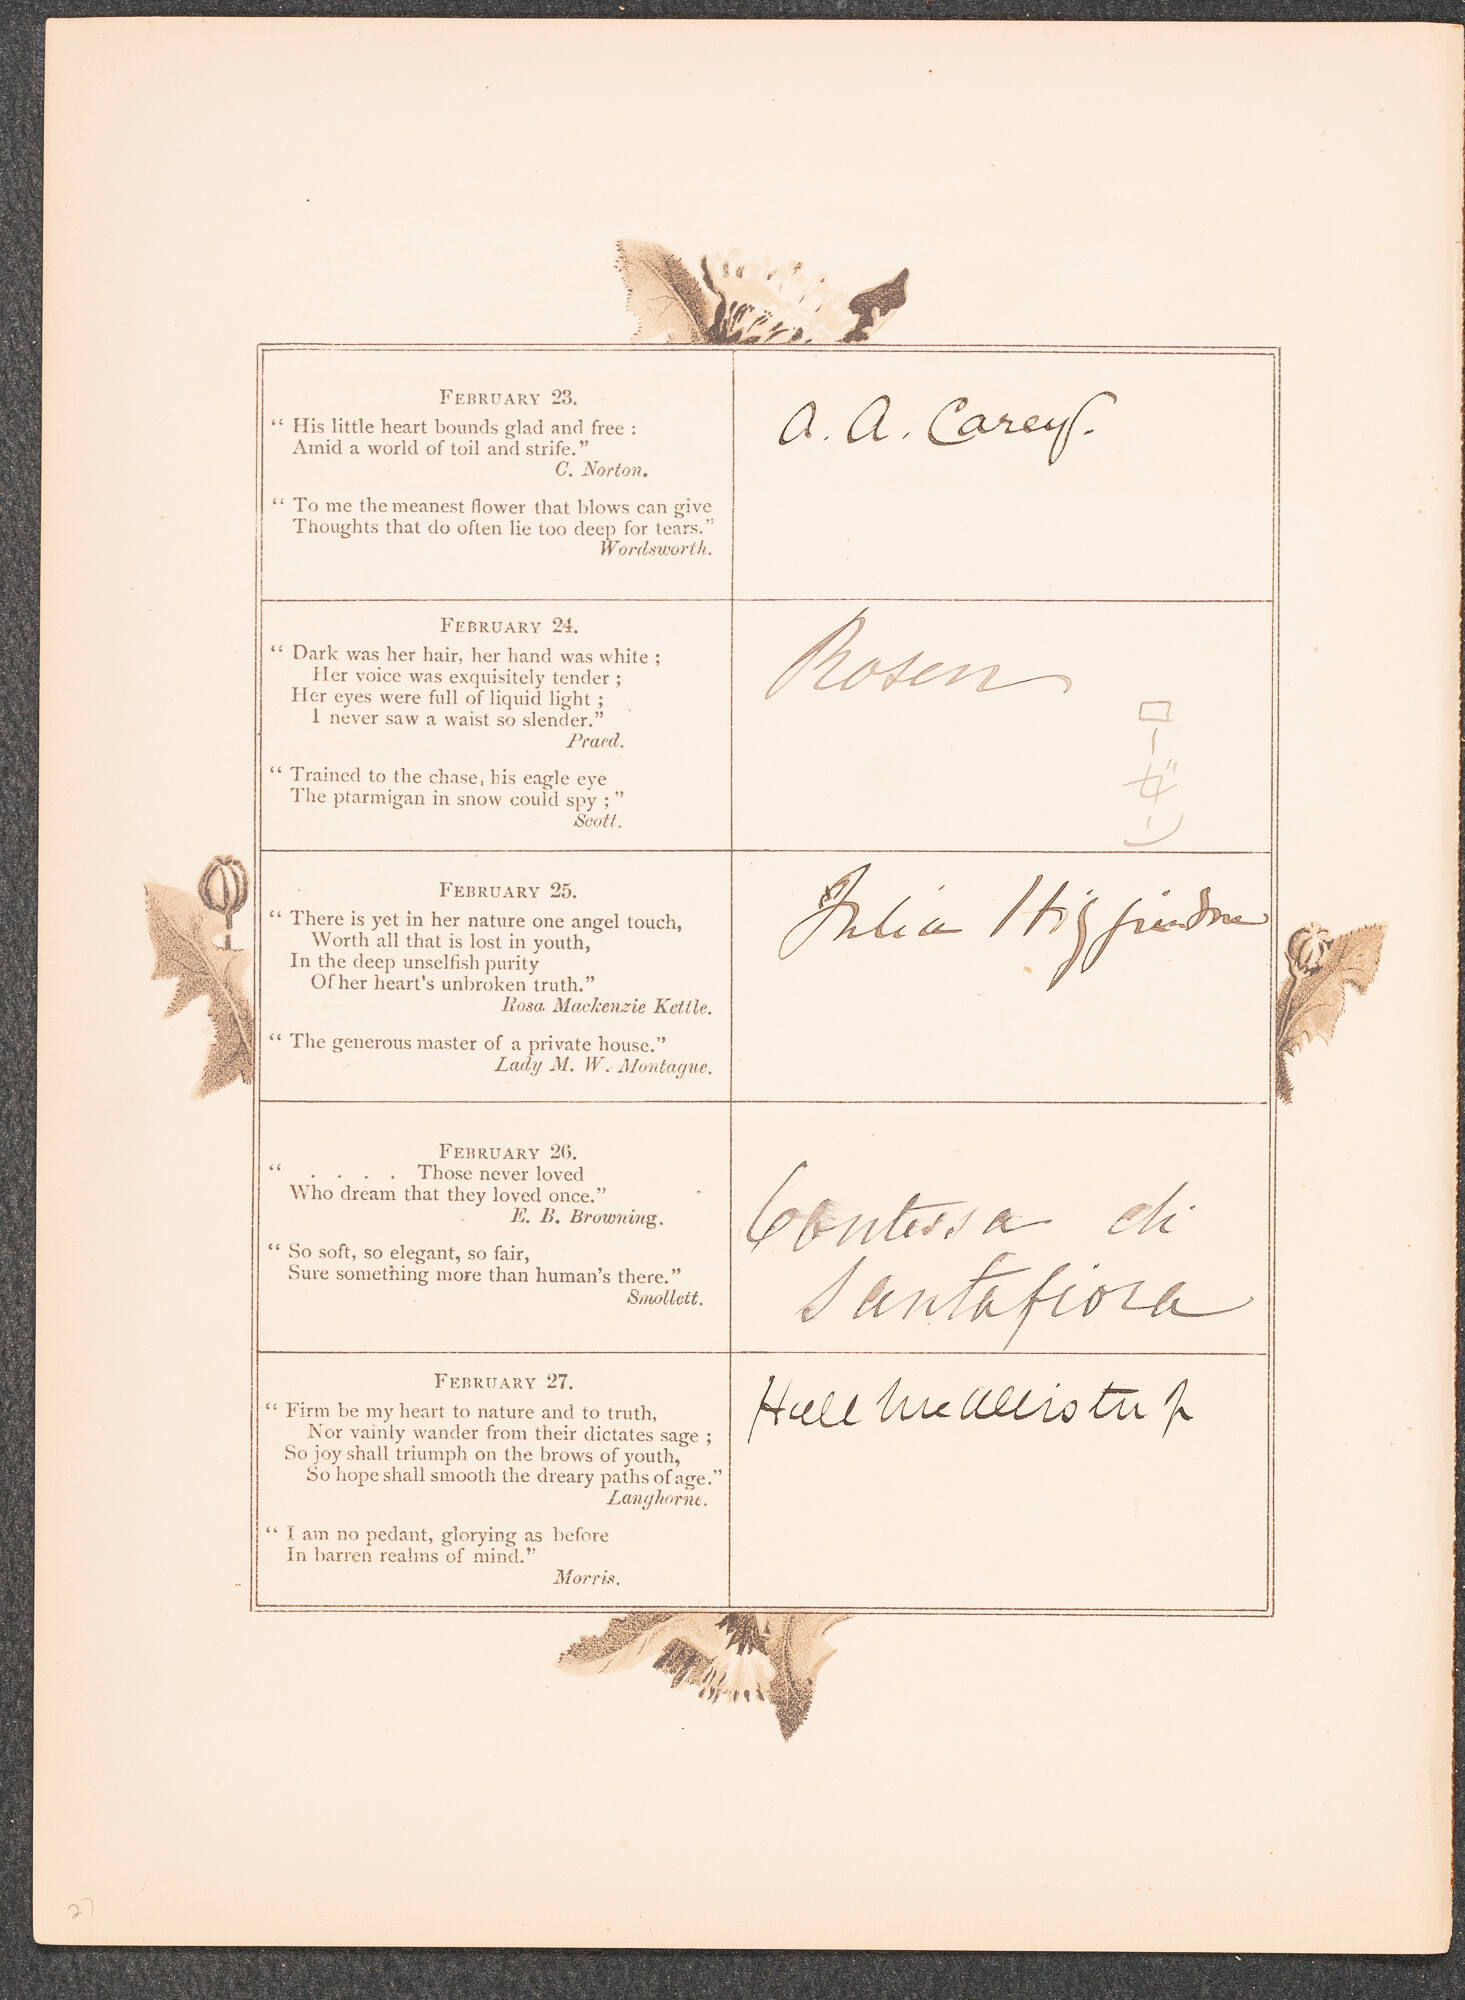 FEBRUARY 23.
“ His little heart bounds glad and free :
Amid a world of toil and strife.”
C. Norton.
“ To me the meanest flower that blows can give
Thoughts that do often lie too deep for tears.”
Wordsworth.
A. A. Carey.
FEBRUARY 24.
“ Dark was her hair, her hand was white ;
Her voice was exquisitely tender ;
Her eyes were full of liquid light ;
I never saw a waist so slender.”
Praed.
“ Trained to the chase, his eagle eye
The ptarmigan in snow could spy ; ”
Scott.
Rosen
ローゼン
FEBRUARY 25.
“ There is yet in her nature one angel touch,
Worth all that is lost in youth,
In the deep unselfish purity
Of her heart's unbroken truth.”
Rosa Mackenzie Kettle.
“ The generous master of a private house.”
Lady M. W. Montague.
Julia Higginson
FEBRUARY 26.
“ . . . . Those never loved
Who dream that they loved once.”
E. B. Browning.
“ So soft, so elegant, so fair,
Sure something more than human's there.”
Smollett.
Contessa di
Santafiora
FEBRUARY 27.
“ Firm be my heart to nature and to truth,
Nor vainly wander from their dictates sage ;
So joy shall triumph on the brows of youth,
So hope shall smooth the dreary paths of age.”
Langhorne.
“ I am no pedant, glorying as before
In barren realms of mind.”
Morris.
Hall McAllister Jr
27